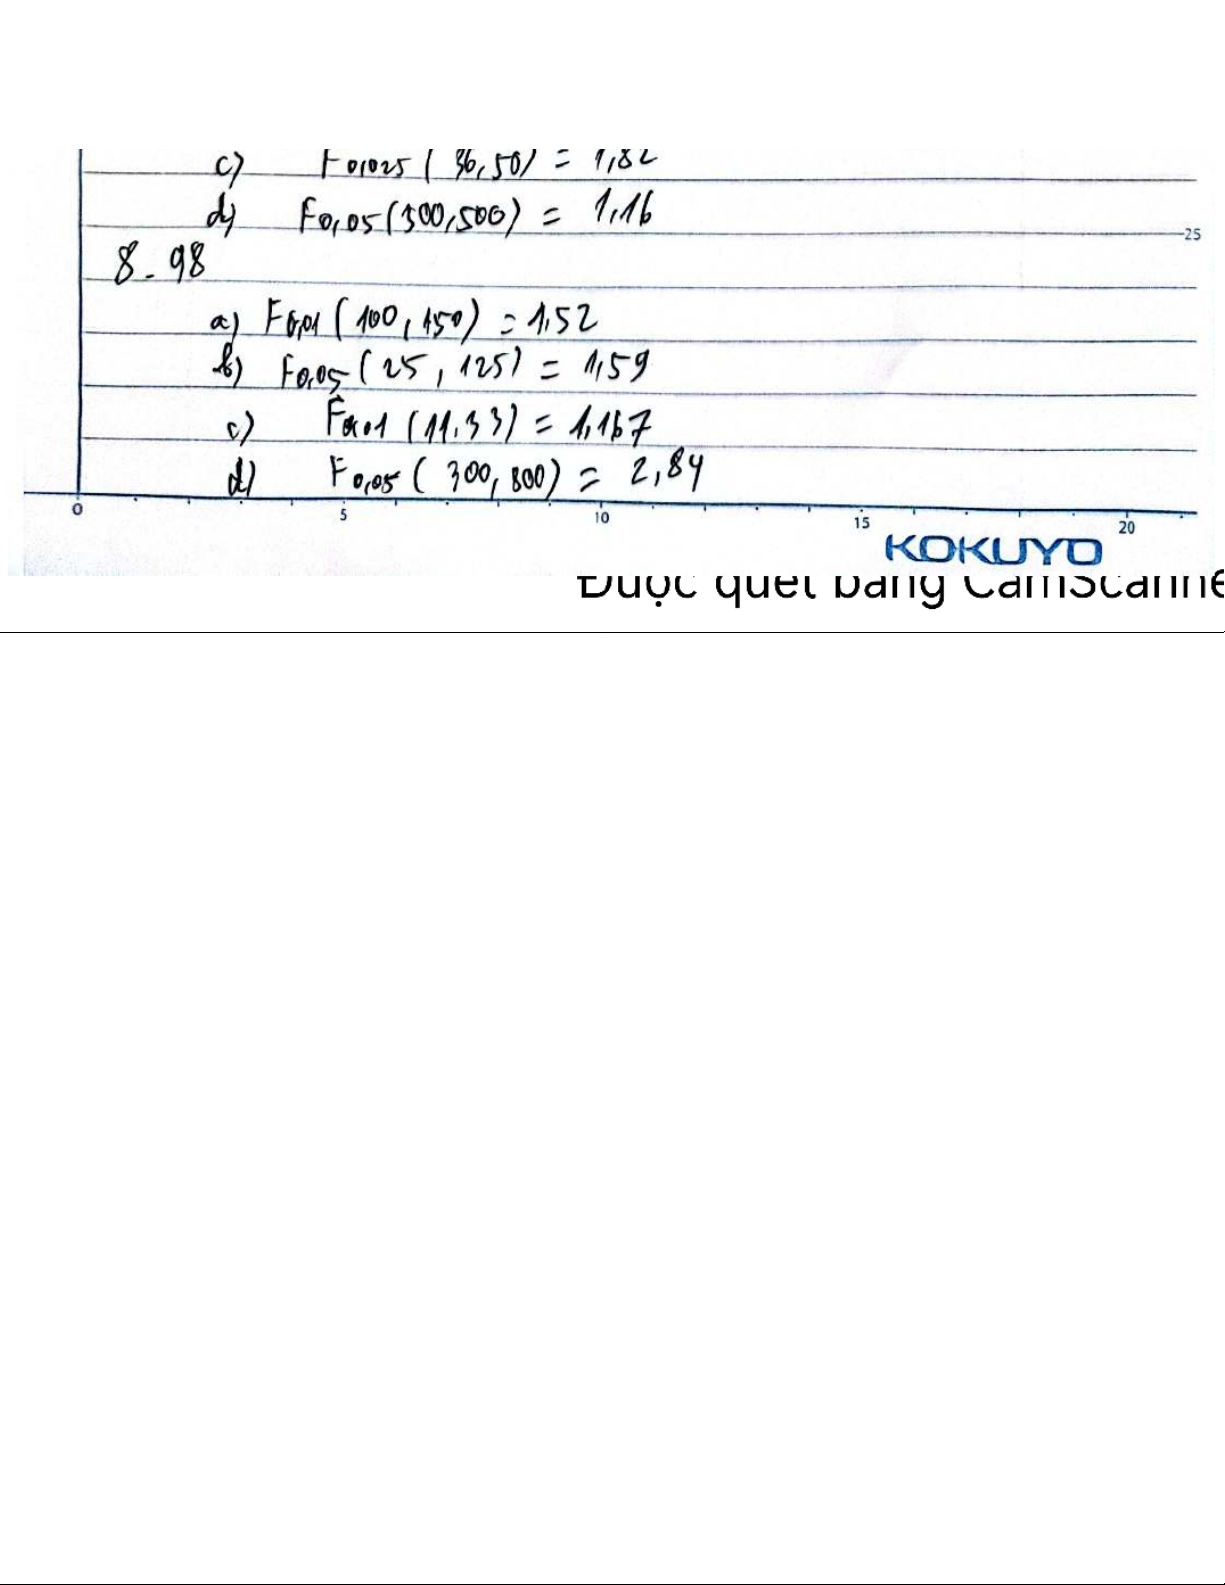 c) F0,025 ( 36,50) = 1,82
d) F0,05(300,500) = 1,16
25
8-98
a) F0,01 ( 100, 150) = 1,52
b) F0,05 ( 25, 125) = 1,59
c) F0,01 (11,33) = 1,167
d) F0,05 ( 300, 800) = 2,84
0 5 10 15 20
KOKUYO
Được quét bằng CamScanne